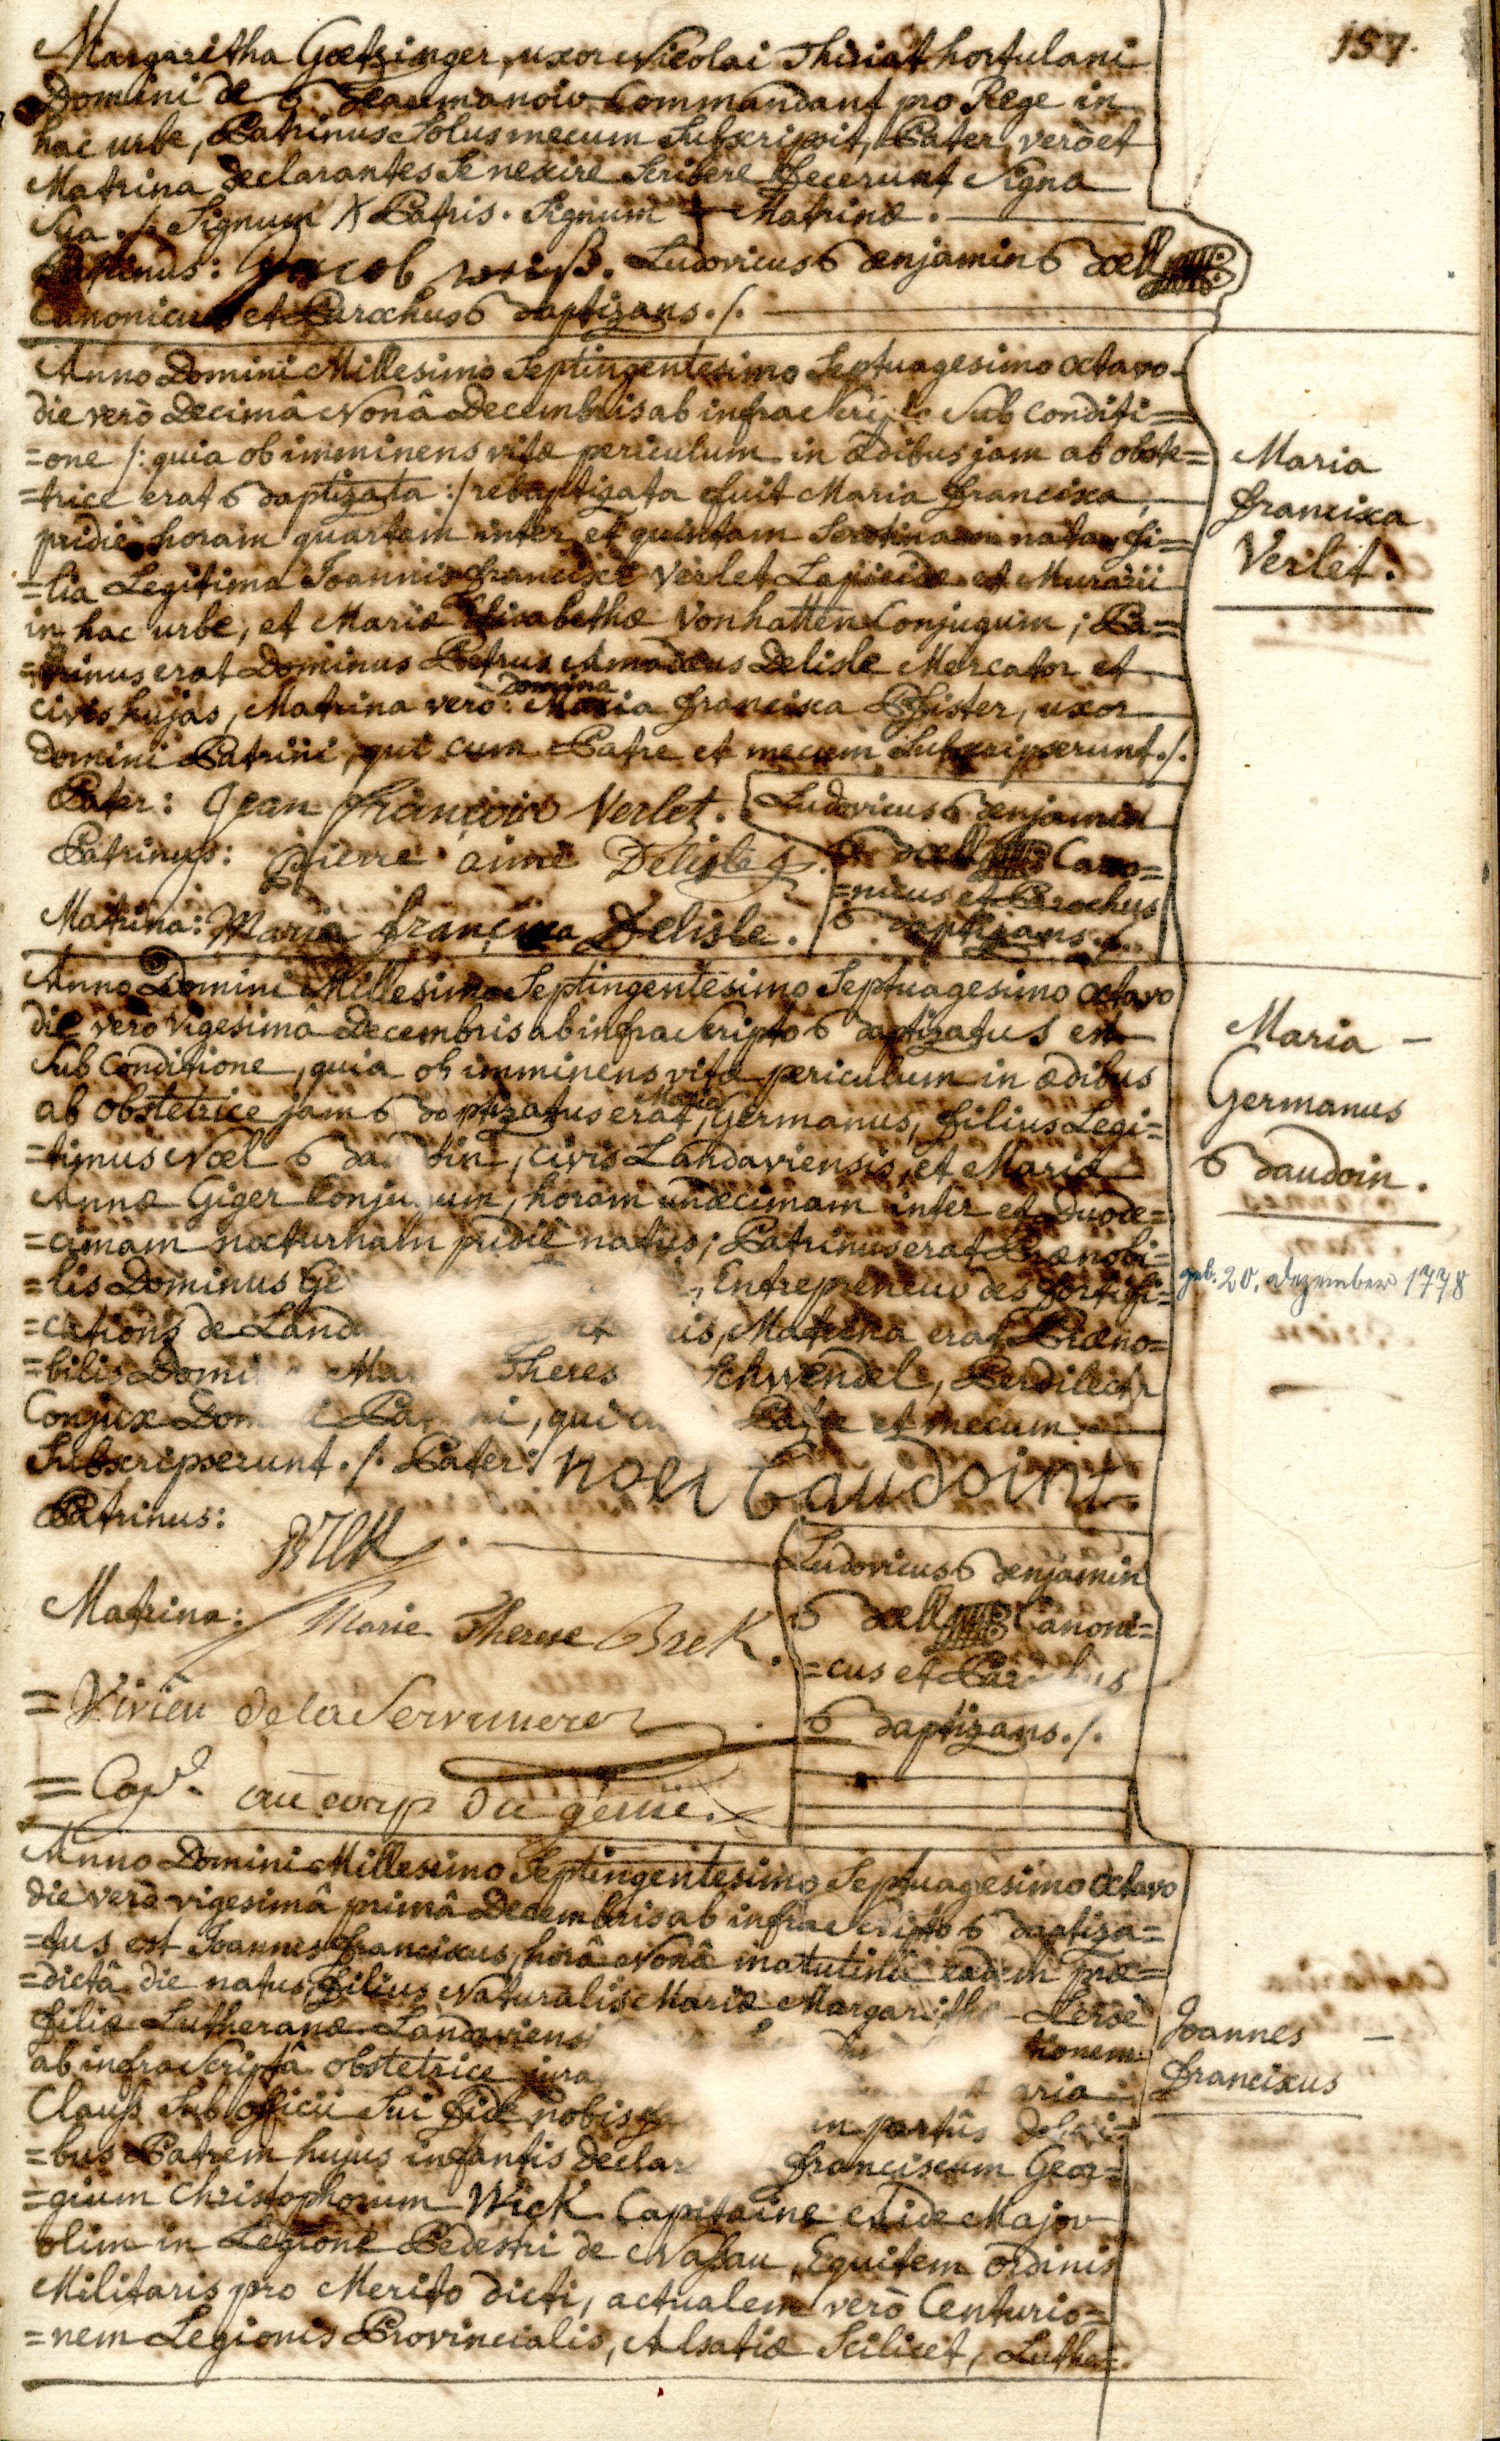 157.
Margaritha Goetzinger, uxor Nicolai Thiriat hortulani
Domini de Beaumanoir Commandant pro Rege in
hac urbe, Patrinus Solus mecum Subscripsit, Pater verò et
Matrina declarantes Se nescire Scribere fecerunt Signa
Sua ./. Signum X Patris. Signum + Matrinæ.
Patrinus: Jacob weiß. Ludovicus Benjamin Boell
Canonicus et Parochus Baptizans ./.
Anno Domini Millesimo Septingentesimo Septuagesimo octavo
die verò Decimâ Nonâ Decembris ab infra Scripto Sub conditi=
=one /: quia ob imminens vitæ periculum in ædibus jam ab obste=
=trice erat Baptizata :/ rebaptizata fuit Maria Francisca,
pridiè horam quartam inter et quintam Serotinam nata, fi=
=lia Legitima Joannis Francisci Verlet Lapicidæ et Murarii
in hac urbe, et Mariæ Elisabethæ Vonhatten Conjugum; Pa=
=trinus erat Dominus Petrus Amadeus Delisle Mercator et
civis hujas, Matrina verò: Domina Maria Francisca Pfister, uxor
Domini Patrini, qui cum Patre et mecum Subscripserunt ./.
Pater: Jean François Verlet.
Patrinus: pierre aimé Delisle
Matrina: Maria francisca Delisle.
Ludovicus Benjamin
Boell Cano=
=nicus et Parochus
Baptizans ./.
Maria
Francisca
Verlet.
Anno Domini Millesimo Septingentesimo Septuagesimo octavo
die verò vigesimâ Decembris ab infra Scripto Baptizatus est
Sub Conditione, quia ob imminens vitæ periculum in ædibus
ab obstetrice jam Baptizatus erat, Maria Germanus, filius Legi=
=timus Noel Baudoin, civis Landaviensis, et Mariæ
Annæ Giger Conjugum, horam undecimam inter et duode=
=cimam nocturnam pridiè natus; Patrinus erat Prænobi=
=lis Dominus Ge Entrepreneur des fortifi=
=cations de Landa Matrina erat Præno=
=bilis Domi Mar Theres Schwendel, Perdilecta
Conjux Dom Pa ni, qui Patre et mecum
Subscripserunt ./. Pater: noel baudoint.
Patrinus: Brek.
Matrina: Marie Therese Brek.
= Vivien de la
= Cap.e au corp du génie.
Ludovicus Benjamin
Boell Canoni=
=cus et Parochus
Baptizans ./.
Maria –
Germanus
Baudoin.
geb. 20. Dezember 1778
Anno Domini Millesimo Septingentesimo Septuagesimo octavo
die verò vigesimâ primâ Decembris ab infra Scripto Baptiza=
=tus est Joannes Franciscus, horâ Nonâ matutinâ eâdem præ=
=dictâ die natus, filius Naturalis Mariæ Margarithæ Lersè
filiæ Lutheranæ Landaviensi tionem
ab infra Scriptâ obstetrice jura aria
Clauß Sub officii Sui fide nobis in partûs dolori=
=bus Patrem hujus infantis declar Franciscum Geor=
=gium Christophorum Wick Capitaine Aide Major
olim in Legione Pedestri de Naßau, Equitem ordinis
Militaris pro Merito dicti, actualem verò Centurio=
=nem Legionis Provincialis, Alsatiæ Scilicet, Luthe=
Joannes –
Franciscus